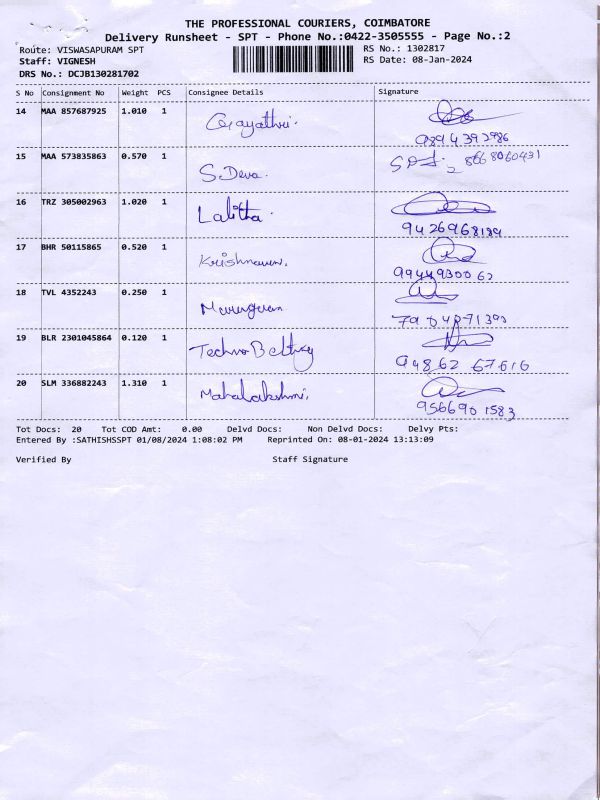 THE PROFESSIONAL COURIERS, COIMBATORE
Delivery Runsheet - SPT - Phone No.:0422-3505555 - Page No.:2
Route: VISWASAPURAM SPT RS No.: 1302817
Staff: VIGNESH RS Date: 08-Jan-2024
DRS No.: DCJB130281702
S No Consignment No Weight PCS Consignee Details Signature
14 MAA 857687925 1.010 1 Gayathri.
9894392986
15 MAA 573835863 0.570 1 S.Deva. 8668060431
16 TRZ 305002963 1.020 1 Lalitha.
9426968189
17 BHR 50115865 0.520 1 Krishnaveni.
9944930062
18 TVL 4352243 0.250 1 Murugan
19 BLR 2301045864 0.120 1 Techno Belting
94862 67616
20 SLM 336882243 1.310 1 Mahalakshmi.
9566901583
Tot Docs: 20 Tot COD Amt: 0.00 Delvd Docs: Non Delvd Docs: Delvy Pts:
Entered By :SATHISHSSPT 01/08/2024 1:08:02 PM Reprinted On: 08-01-2024 13:13:09
Verified By Staff Signature